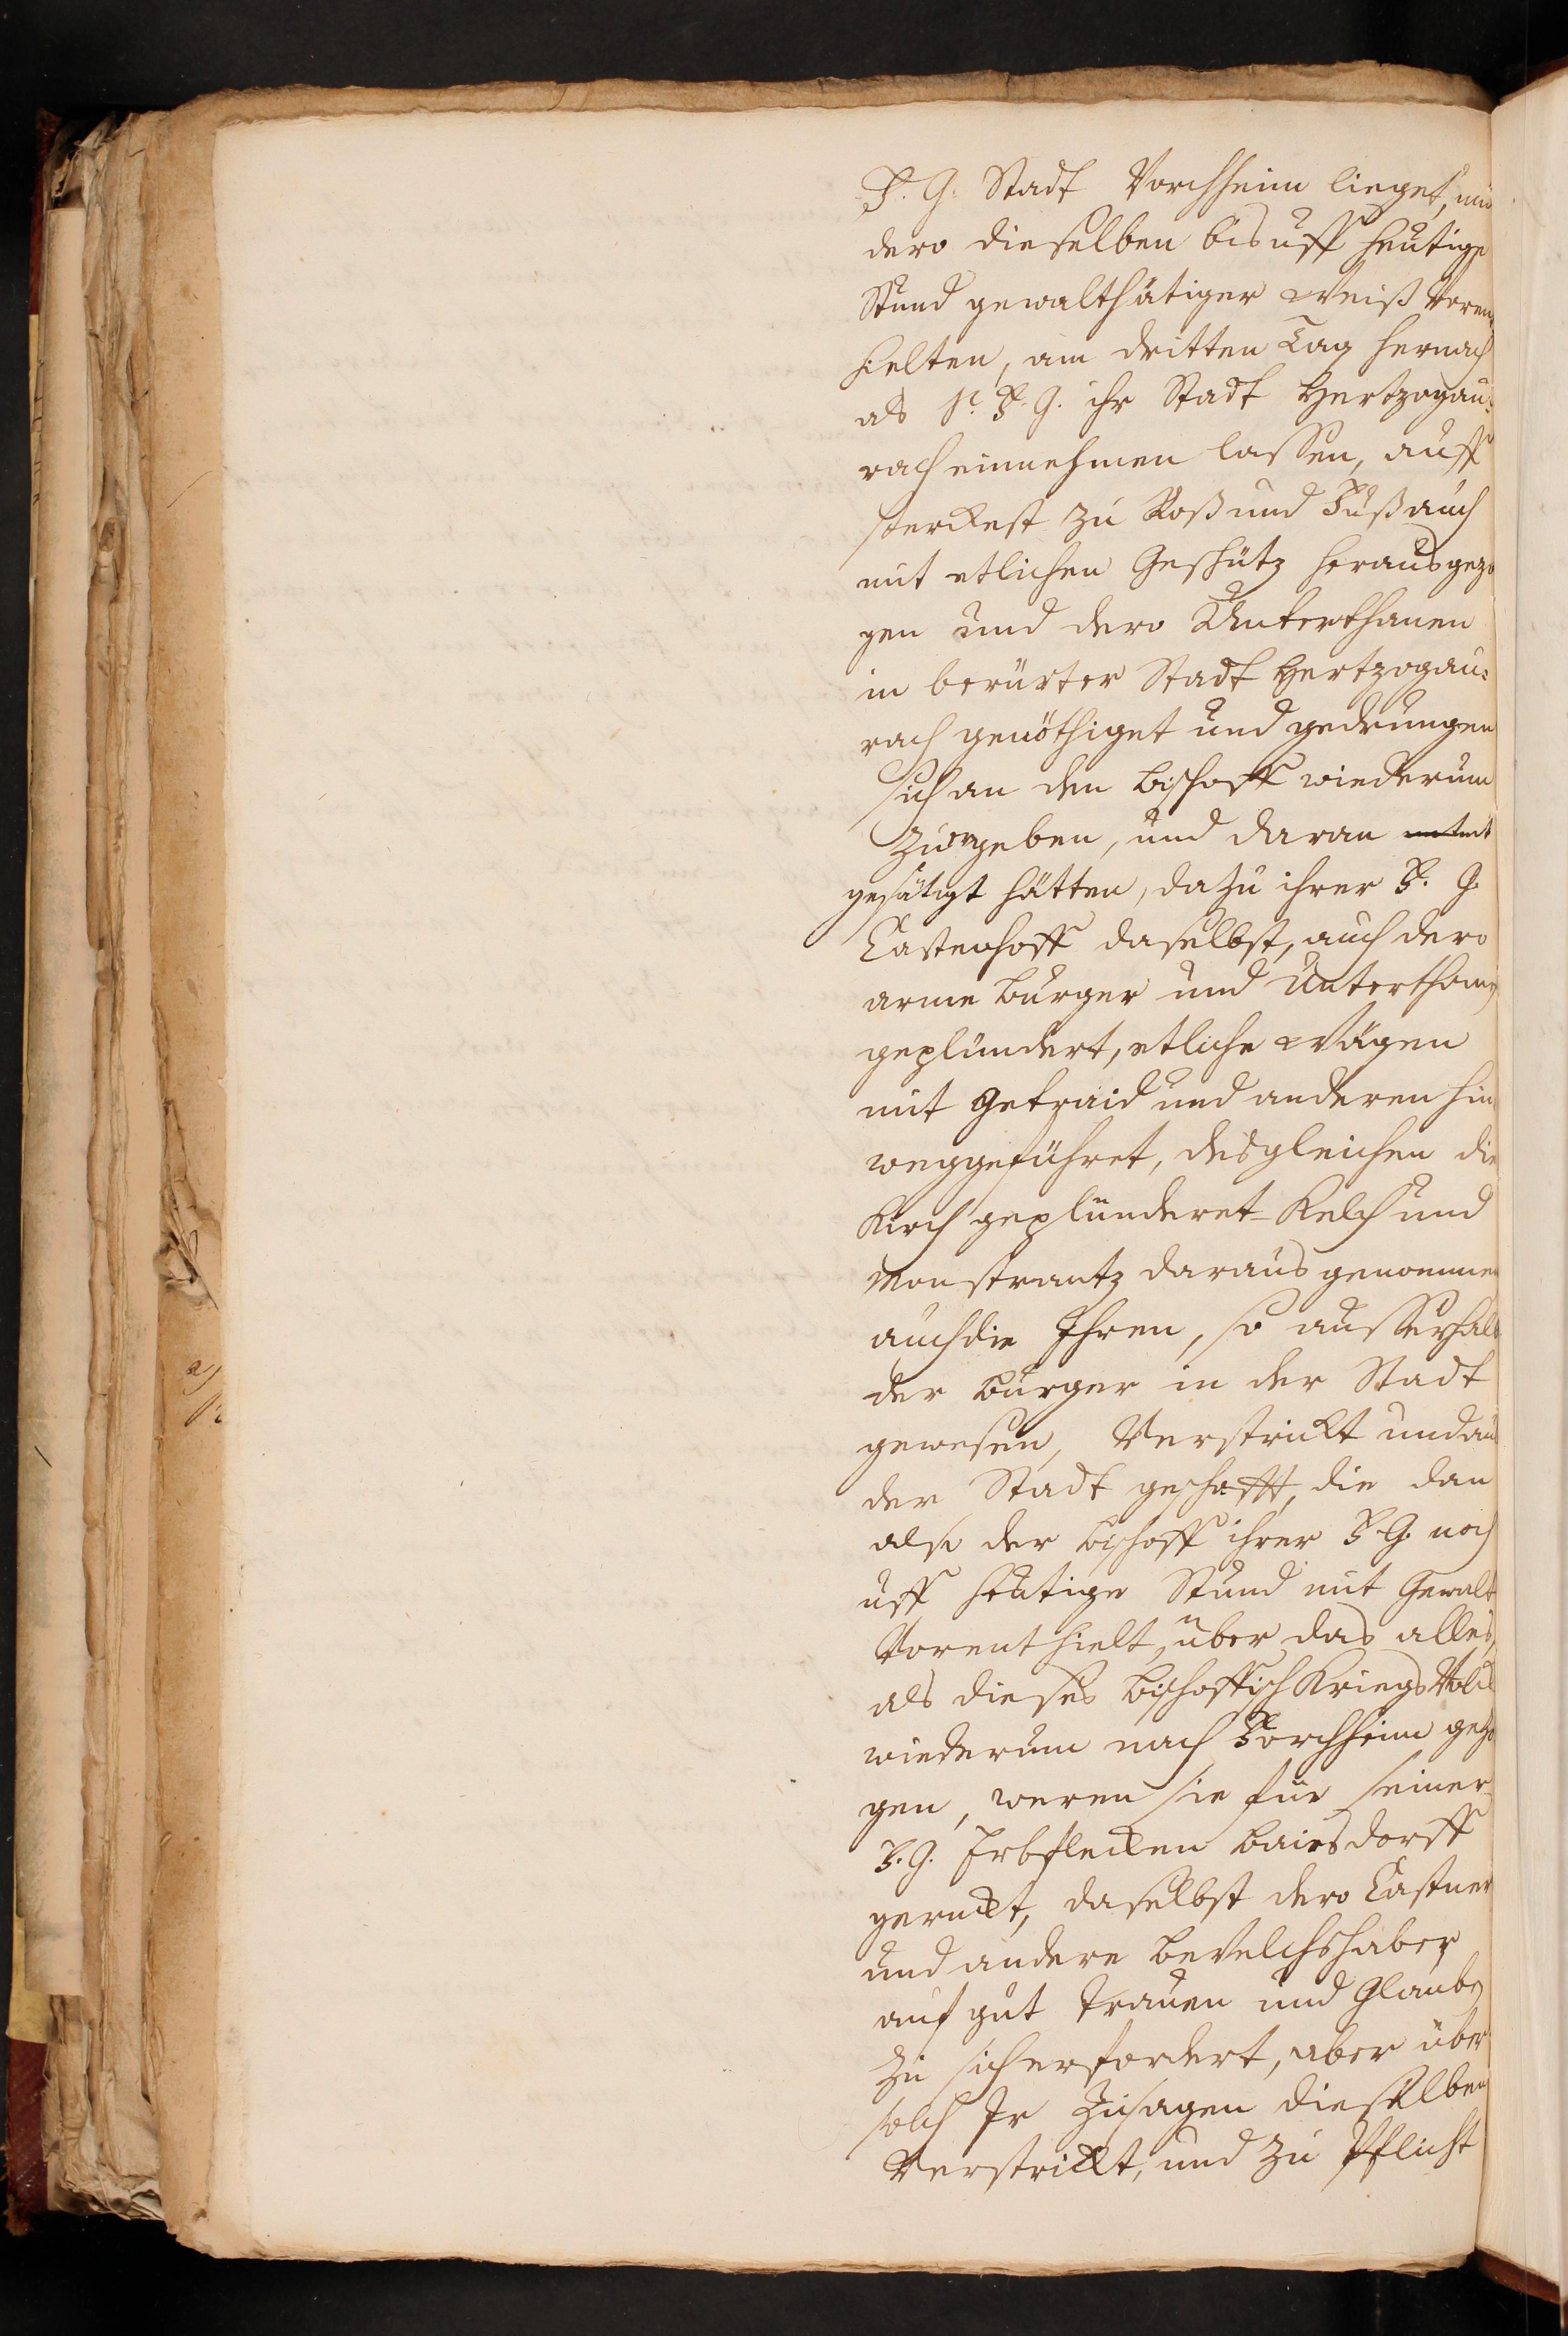 F. G. Stadt Vorchheim lieget, und
dero dieselben bis uff heutige
Stund gewalthätiger Weiß Voren-
hielten, am dritten Tag hernach
als Sr. F. G. ihr Stadt Hertzogau:
rach einnehmen lassen, auff
sterckest zu Roß und Fuß auch
mit etlichen Geschütz herausgezo
gen und dero Unterthanen
in berürter Stadt Hertzogau:
rach genöthiget und gedrungen
sich an den Bischoff wiederum
zu ergeben, und daran
gesätigt hätten, dazu ihrer F. G.
Castenhoff daselbst, auch dero
arme Burger und Unterthanen
geplündert, etliche Wägen
mit Getraid und anderen hin
weggeführet, desgleichen die
Kirch geplünderet Kelch und
Monstrantz daraus genommen
auch die Ihren, so ausserhalb
der Burger in der Stadt
gewesen, Verstrickt und aus
der Stadt geschafft, die dan
also der Bischoff ihrer F. G. noch
uff heutige Stund mit Gewalt
Vorenthielt, über das alles,
als dieses Bischoffisch Kriegs Volck
wiederum nach Forchheim gezo
gen, weren sie für seiner
F. G. Erbflecken Baiersdorff
geruckt, daselbst dero Castner
und andere Bevelchshaber
auf gut Trauen und Glauben
zu sich erfordert, aber über
solch Ir Zusagen dieselben
Verstrickt, und zu Pflicht